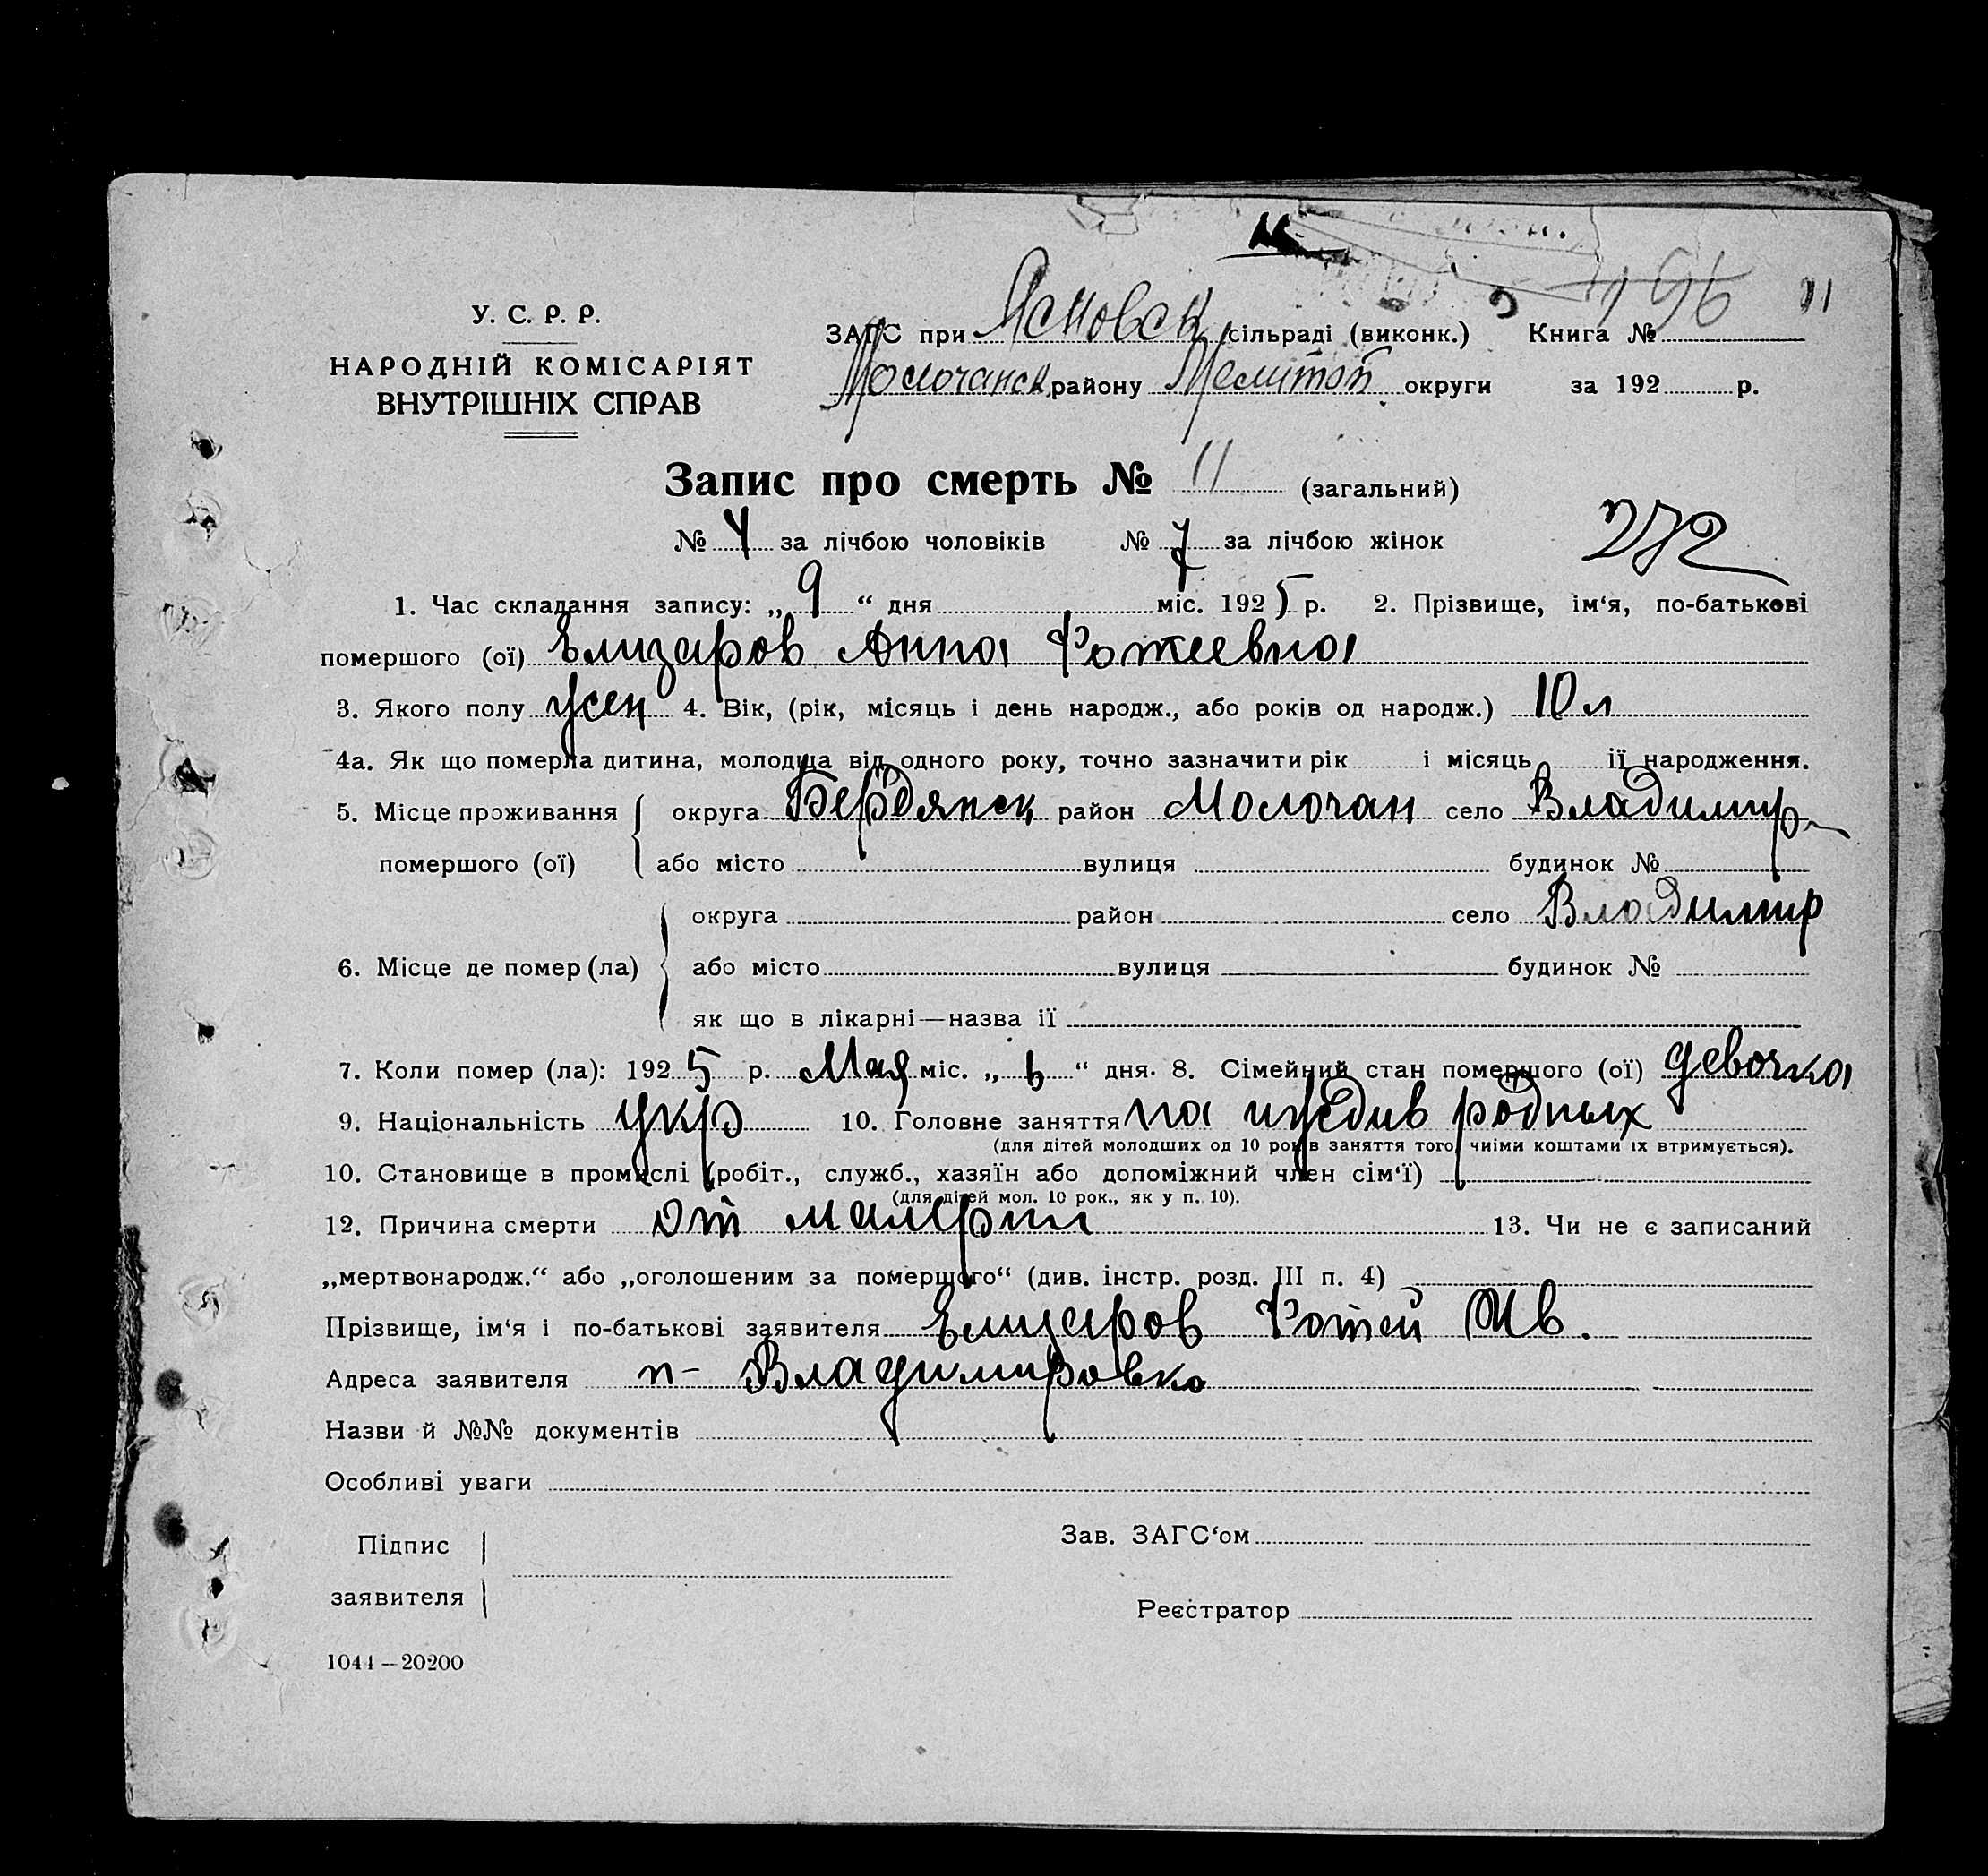 11
У. С. Р. Р.
НАРОДНІЙ КОМІСАРІЯТ
ВНУТРІШНІХ СПРАВ
ЗАГС при Ясновск сільраді (виконк.) Книга №
Молочанск району Мелитоп округи за 192 р.
Запис про смерть № 11 (загальний)
№ 4 за лічбою чоловіків № 7 за лічбою жінок
272
1. Час складання запису: „ 9 “ дня міс. 1925 р. 2. Прізвище, ім‘я, по-батькові
помершого (ої) Елизаров Анна Фотеевна
3. Якого полу жен 4. Вік, (рік, місяць і день народж., або років од народж.) 10 л
4а. Як що померла дитина, молодща від одного року, точно зазначити рік і місяць ії народження.
5. Місце проживання округа Бердянск район Молочан село Владимир
помершого (ої) або місто вулиця будинок №
округа район село Владимир
6. Місце де помер (ла) або місто вулиця будинок №
як що в лікарні—назва ії
7. Коли помер (ла): 1925 р. Мая міс. „ 6 “ дня. 8. Сімейний стан помершого (ої) девочка
9. Національність укр 10. Головне заняття на иждив родных
(для дітей молодших од 10 років заняття того, чиїми коштами їх втримується).
10. Становище в промислі (робіт., служб., хазяїн або допоміжний член сім‘ї)
(для дітей мол. 10 рок., як у п. 10).
12. Причина смерти От малярии 13. Чи не є записаний
„мертвонародж.“ або „оголошеним за померщого“ (див. інстр. розд. III п. 4)
Прізвище, ім‘я і по-батькові заявителя Елизаров Фотей Ив.
Адреса заявителя п- Владимировка
Назви й №№ документів
Особливі уваги
Підпис
заявителя
Зав. ЗАГС‘ом
Реєстратор
1044 — 20200